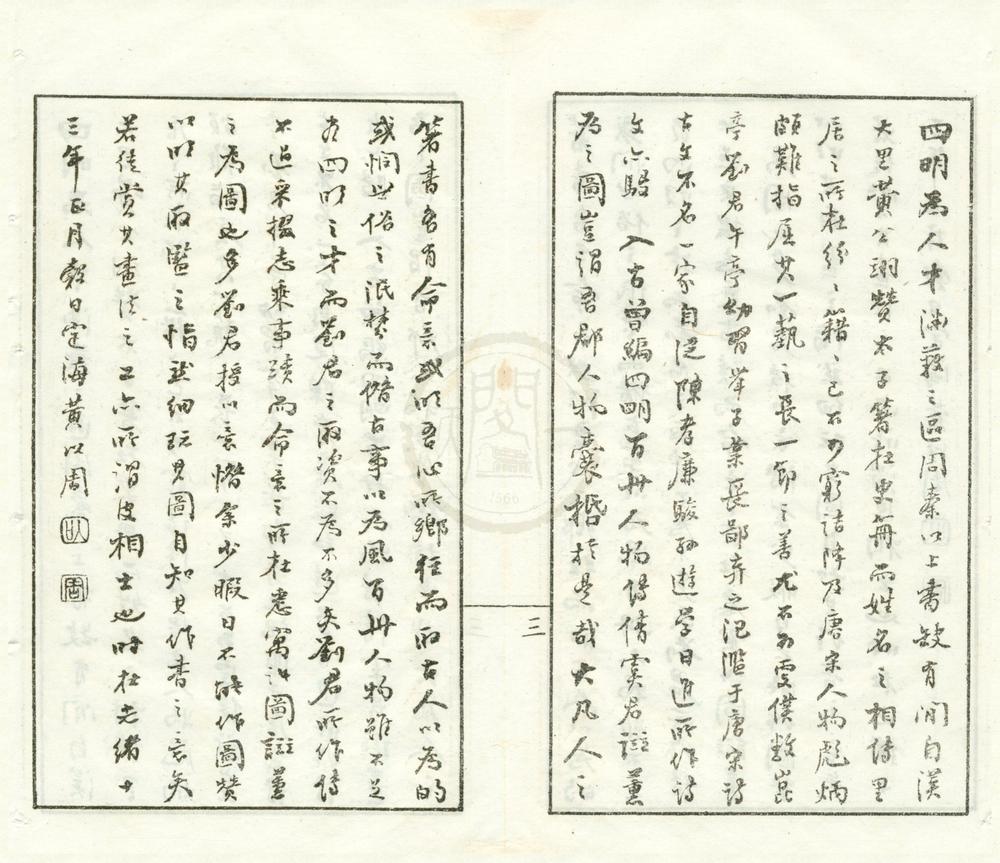 四明為人才淵藪之區周秦以上書缺有間自漢
大里黃公翊贊太子著在史冊而姓名之相傳里
居之所在紛紛籍籍已不可窮詰降及唐宋人物彪炳
頗難指屈其一藝之長一節之善尤不可更僕數崑
亭劉君午亭幼習舉子業長鄙弃之氾濫于唐宋詩
古文不名一家自從陳孝廉駿孫遊學日進所作詩
文亦駸入古曾編四明百卅人物傳倩虞君謝薰
為之圖豈謂吾郡人物囊括於是哉大凡人之
箸書各有命意或以吾心所鄉往而取古人以為的
或憫世俗之泯棼而借古事以為風百卅人物雖不足
為四明之才而劉君之取資不為不多矣劉君所作傳
不過采掇志乘事蹟而命意之所在悉寓謝圖謝薰
之為圖也多劉君授以意惜余少暇日不能作圖贊
以明其取鑒之恉然細玩其圖自知其作書之意矣
若徒賞其畫法之工亦所謂皮相士也時在光緒十
三年正月穀日定海黃以周
以 周
三